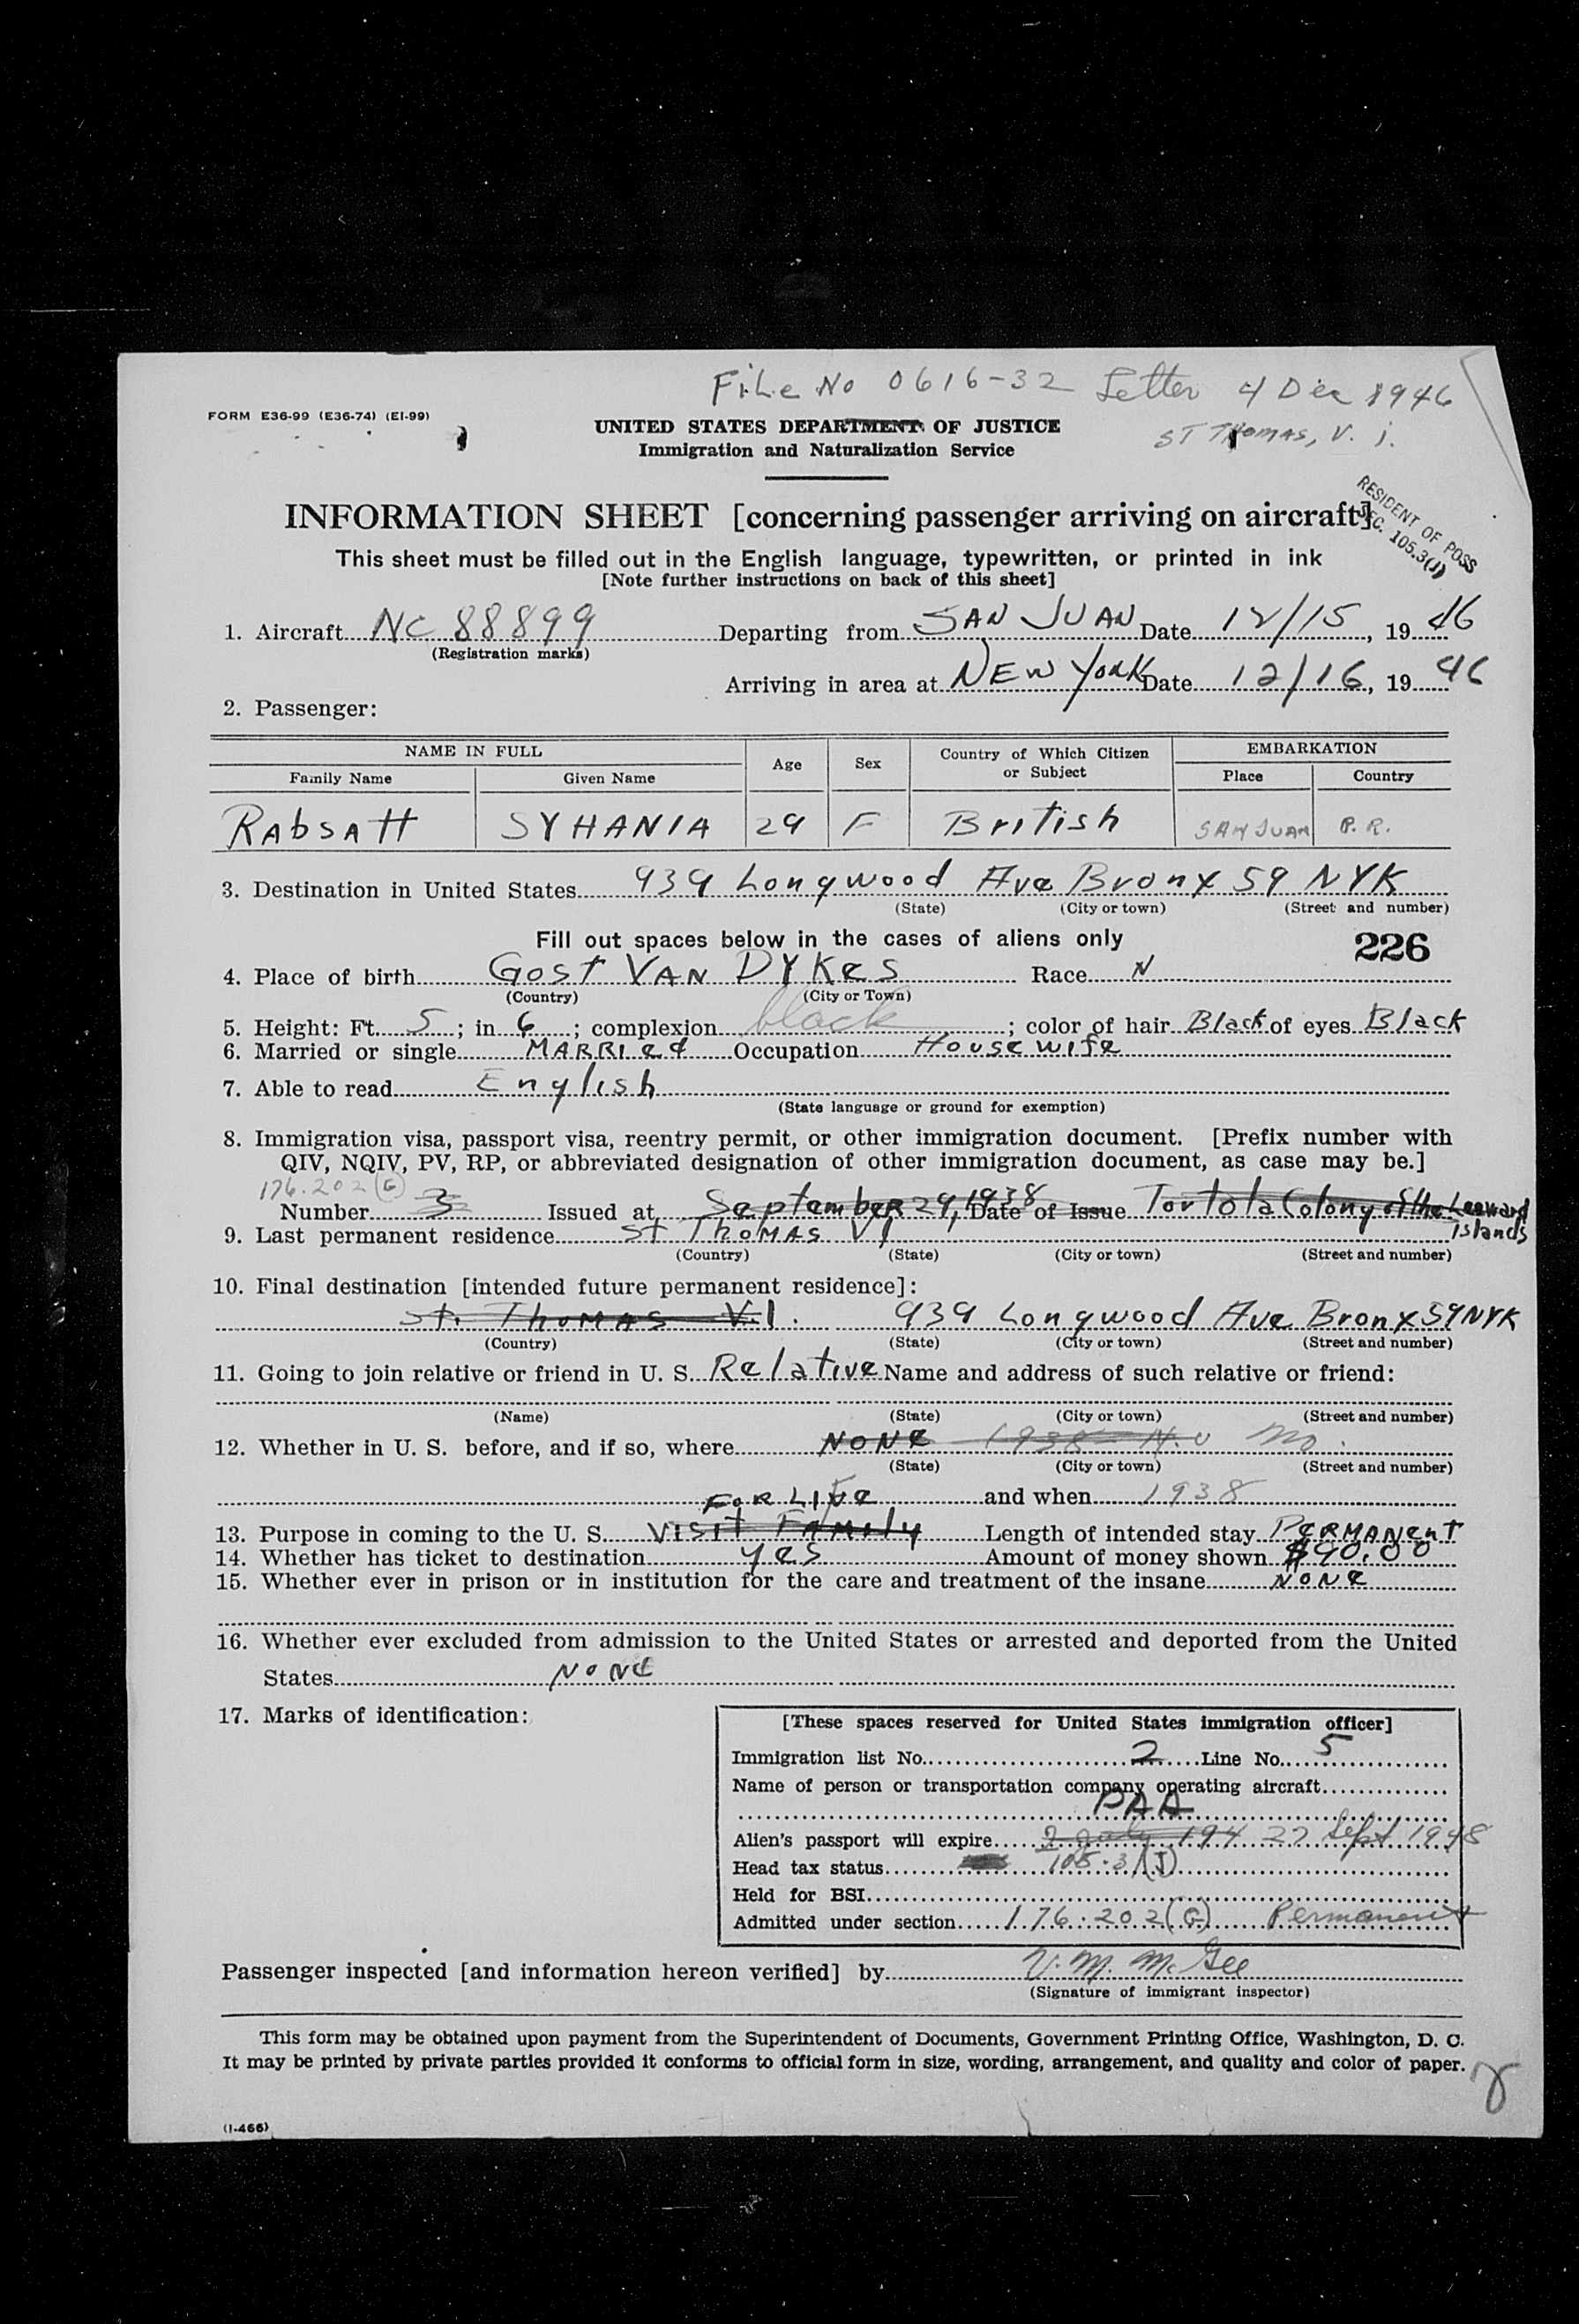 File No 0616-32 Letter 4 Dec 1946
ST THOMAS, V. i.
FORM E36-99 (E36-74) (EI-99)
UNITED STATES DEPARTMENT OF JUSTICE
Immigration and Naturalization Service
RESIDENT OF POSS
SEC. 105.3(J)
INFORMATION SHEET [concerning passenger arriving on aircraft]
This sheet must be filled out in the English language, typewritten, or printed in ink
[Note further instructions on back of this sheet]
1. Aircraft NC 88899 Departing from SAN JUAN Date 12/15, 19 46
(Registration marks)
Arriving in area at NEW YORK Date 12/16, 19 46
2. Passenger:
NAME IN FULL Age Sex Country of Which Citizen or Subject EMBARKATION
Family Name Given Name Place Country
RAbsAtt SYHANIA 29 F British SAN JUAN P.R.
3. Destination in United States 939 Longwood Ave Bronx 59 NYK
(State) (City or town) (Street and number)
Fill out spaces below in the cases of aliens only 226
4. Place of birth GOST VAN DYKes Race N
(Country) (City or Town)
5. Height: Ft. 5; in 6; complexion black; color of hair Black of eyes Black
6. Married or single MARRIed Occupation Housewife
7. Able to read English
(State language or ground for exemption)
8. Immigration visa, passport visa, reentry permit, or other immigration document. [Prefix number with
QIV, NQIV, PV, RP, or abbreviated designation of other immigration document, as case may be.]
176.202(G)
Number 3 Issued at September 29, 1938 Date of Issue Tortola Colony of the Leeward
Islands
9. Last permanent residence St THOMAS VI
(Country) (State) (City or town) (Street and number)
10. Final destination [intended future permanent residence]:
St. THOMAS V.I. 939 Longwood Ave Bronx 59 NYK
(Country) (State) (City or town) (Street and number)
11. Going to join relative or friend in U. S. Relative Name and address of such relative or friend:
(Name) (State) (City or town) (Street and number)
12. Whether in U. S. before, and if so, where NONE 1938 no
(State) (City or town) (Street and number)
FOR LIVE and when 1938
13. Purpose in coming to the U. S. VISIT FAMILY Length of intended stay PERMANEnT
14. Whether has ticket to destination yes Amount of money shown $90.00
15. Whether ever in prison or in institution for the care and treatment of the insane NONE
16. Whether ever excluded from admission to the United States or arrested and deported from the United
States NONE
17. Marks of identification:
[These spaces reserved for United States immigration officer]
Immigration list No. 2 Line No. 5
Name of person or transportation company operating aircraft
PAA
Alien's passport will expire 2 July 194 27 Sept 1948
Head tax status 105.3(J)
Held for BSI
Admitted under section 176.202(G) Permanent
Passenger inspected [and information hereon verified] by V. M. McGee
(Signature of immigrant inspector)
This form may be obtained upon payment from the Superintendent of Documents, Government Printing Office, Washington, D. C.
It may be printed by private parties provided it conforms to official form in size, wording, arrangement, and quality and color of paper.
(I-466)